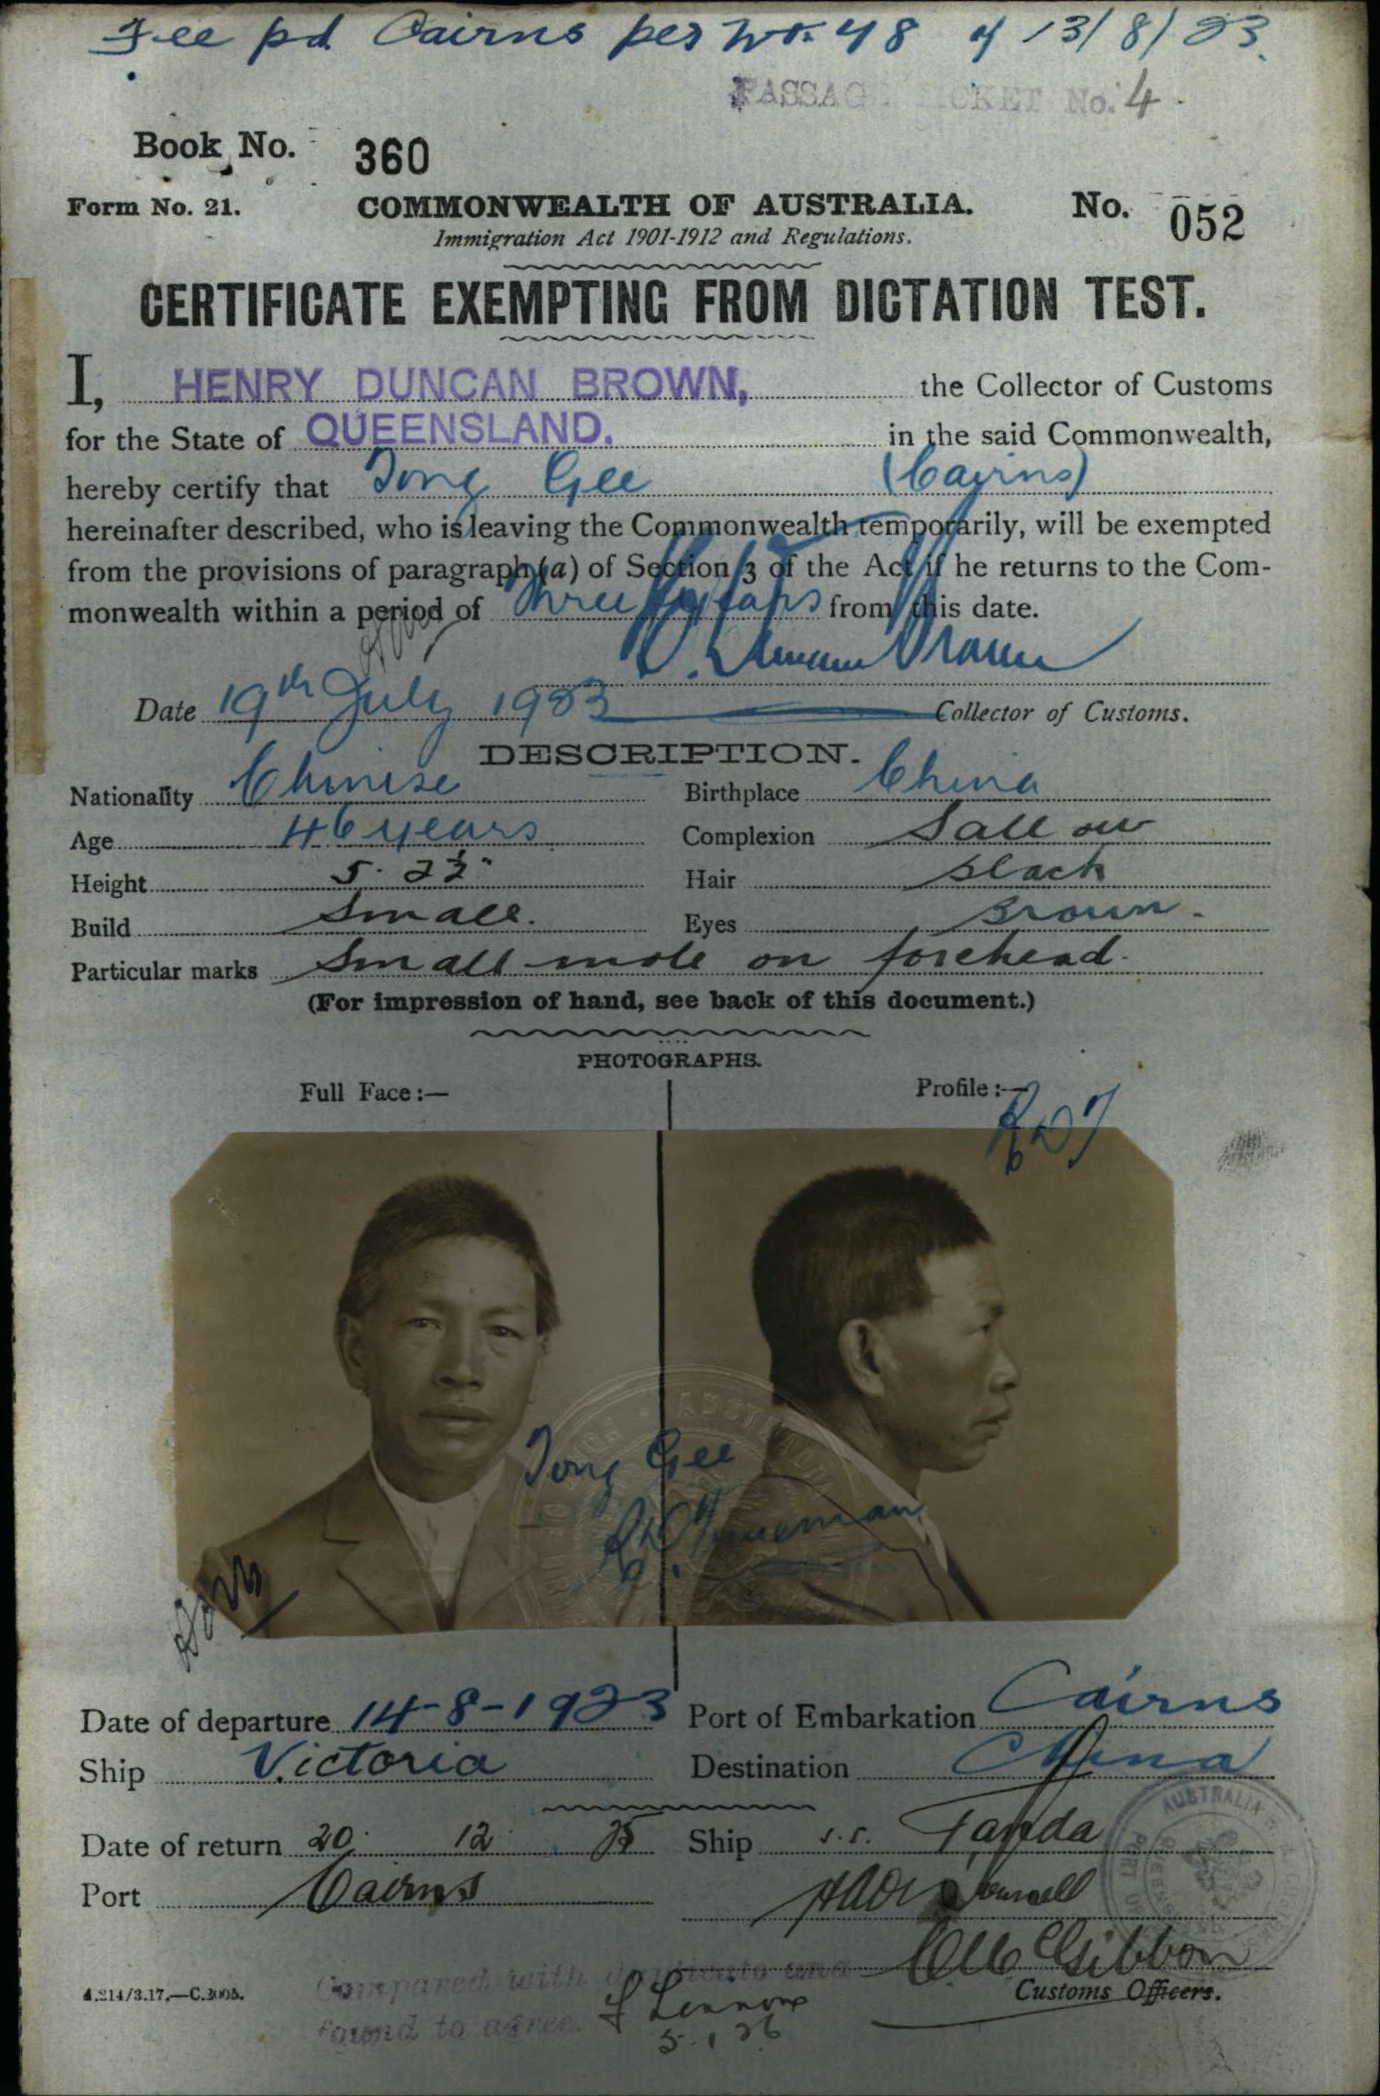 Fee pd Cairns per No. 48 of 13/8/23.
PASSAGE TICKET No. 4
Book No. 360
Form No. 21. COMMONWEALTH OF AUSTRALIA. No. 052
Immigration Act 1901-1912 and Regulations.
CERTIFICATE EXEMPTING FROM DICTATION TEST.
I, HENRY DUNCAN BROWN, the Collector of Customs
for the State of QUEENSLAND. in the said Commonwealth,
hereby certify that Tong Gee (Cairns)
hereinafter described, who is leaving the Commonwealth temporarily, will be exempted
from the provisions of paragraph (a) of Section 3 of the Act if he returns to the Com-
monwealth within a period of Three years from this date.
H. Duncan Brown
Date 19th July 1923 Collector of Customs.
DESCRIPTION.
Nationality Chinese Birthplace China
Age 46 years Complexion Sallow
Height 5. 2½" Hair Black
Build Small. Eyes Brown.
Particular marks Small mole on forehead.
(For impression of hand, see back of this document.)
PHOTOGRAPHS.
Full Face:— Profile:—
Tong Gee
Date of departure 14-8-1923 Port of Embarkation Cairns
Ship Victoria Destination China
Date of return 20. 12. 25 Ship s.s. Tanda
Port Cairns
Customs Officers.
4.214/3.17.—C.3005.
Compared with duplicate and
found to agree. F Lennon
5.1.26